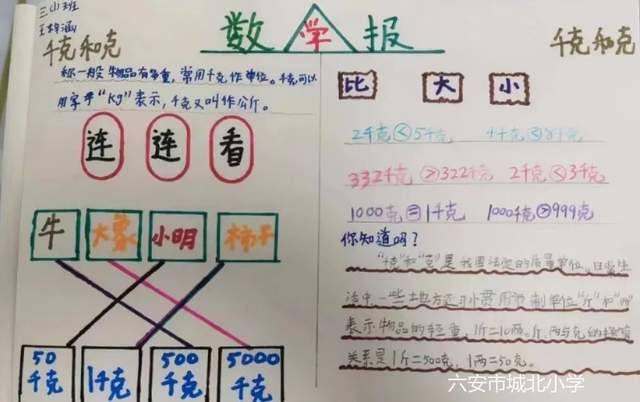 三(1)班
数学报
千克和克
千克和克
称一般物品有多重，常用千克作单位。千克可以
用字母"kg"表示，千克又叫作公斤。
连 连 看
牛 大象 小明 柿子
50千克 1千克 500千克 5000千克
比 大 小
2千克<5千克
332千克>322千克 2千克<3千克
1000克=1千克 1000千克>999克
你知道吗？
"千克"和"克"是我国法定的质量单位。日常生
活中一些地方还习惯用市制单位"斤"和"两"
表示物品的轻重，1斤=10两。斤、两与克的
关系是1斤=500克，1两=50克。
六安市城北小学